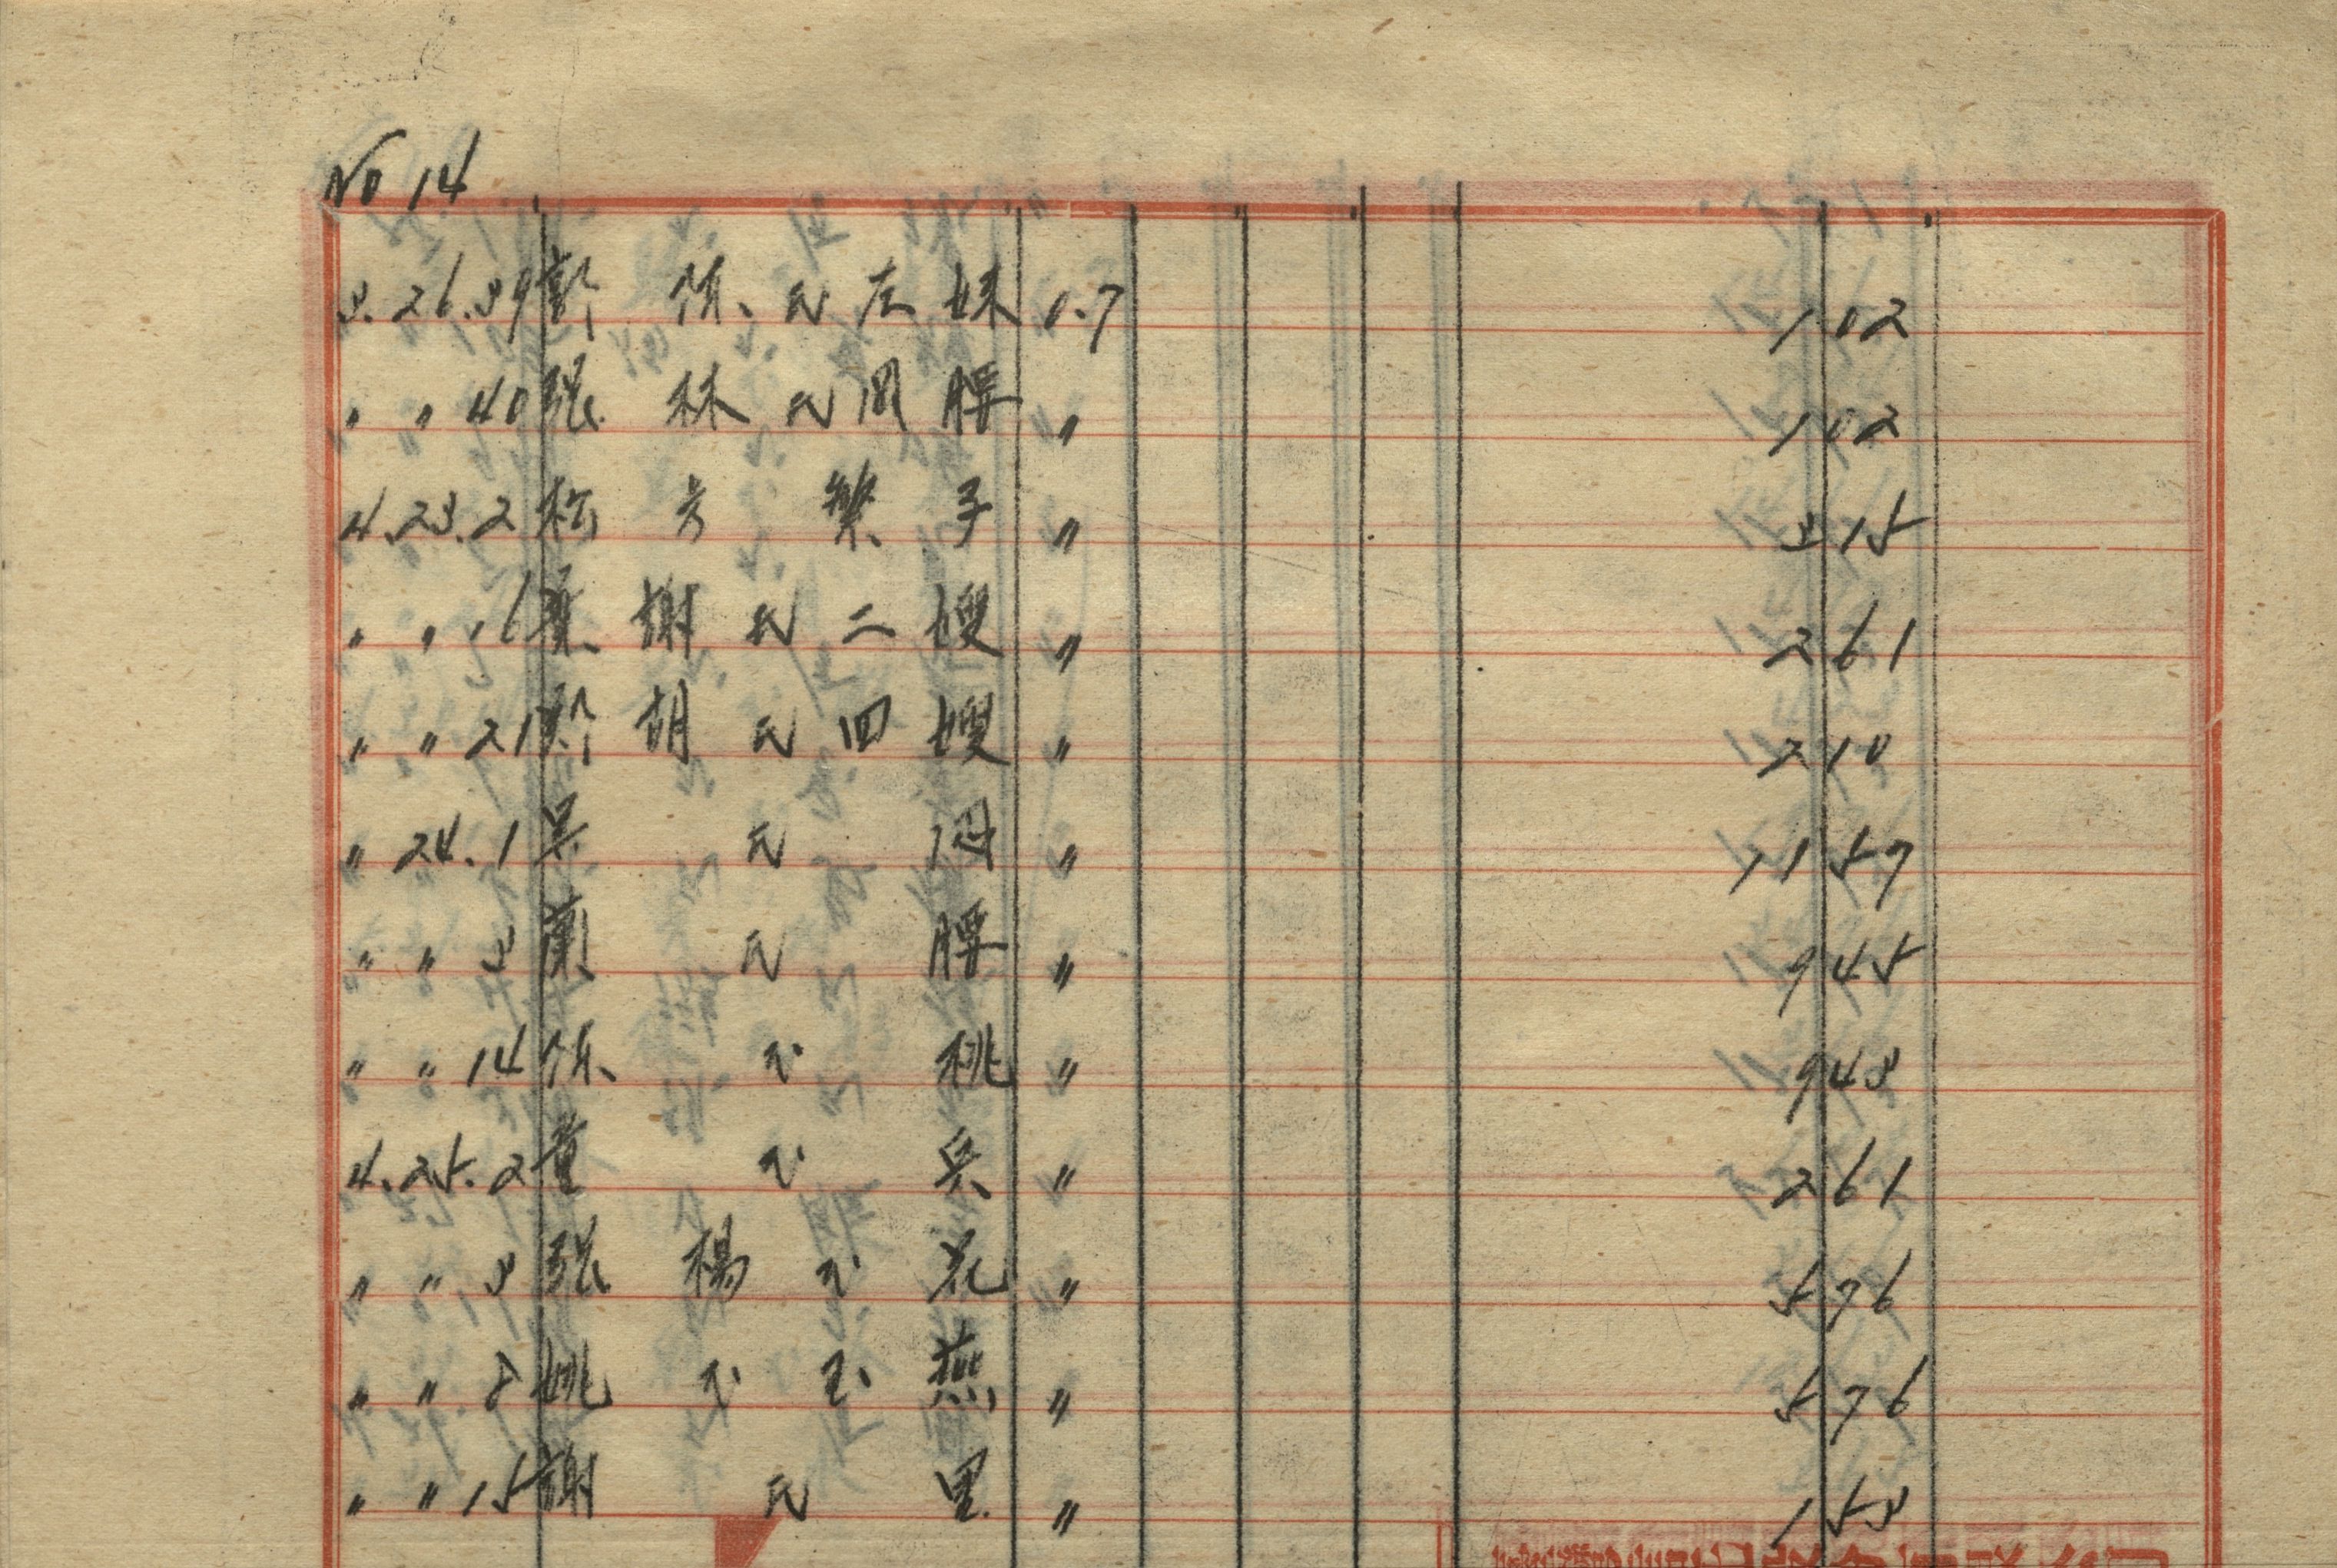 No 14
3. 26. 39 彭 侯 氏 左 妹 0.7 1 02
〃 〃 40 張 林 氏 罔 腰 〃 1 02
4. 23. 2 松方 繁子 〃 3 15
〃 〃 16 葉 謝 氏 二 嫂 〃 2 61
〃 〃 21 鄭 胡 氏 四 嫂 〃 2 10
〃 24. 1 吳 氏 〃 11 57
〃 〃 3 蘭 氏 腰 〃 9 45
〃 〃 14 侯 氏 桃 〃 9 43
4. 25. 2 董 氏 兵 〃 2 61
〃 〃 3 張 楊 氏 花 〃 5 76
〃 〃 8 姚 氏 玉 燕 〃 5 76
〃 〃 15 謝 氏 里 〃 1 53